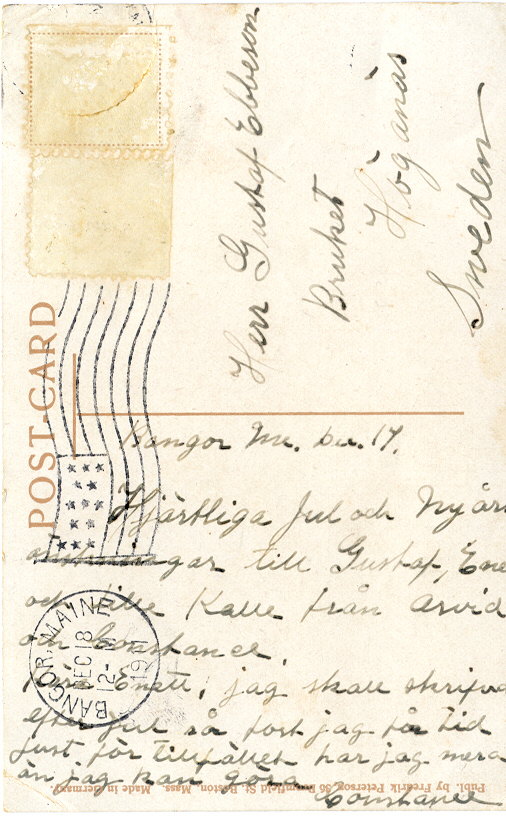 POST-CARD
Herr Gustaf Ebbeson
Bruket
Höganäs
Sweden
BANGOR, MAINE
DEC 18
12-
Bangor Me. Dec. 17.
Hjärtliga Jul och Nyårs
till Gustaf,
och lille Kalle från Arvid
Constance.
jag skall skrifva
efter Jul så fort jag får tid
Just för tillfället har jag mera
än jag kan göra
Constance
Publ. by Fredrik Peterson, 36 Bromfield St. Boston, Mass. Made in Germany.